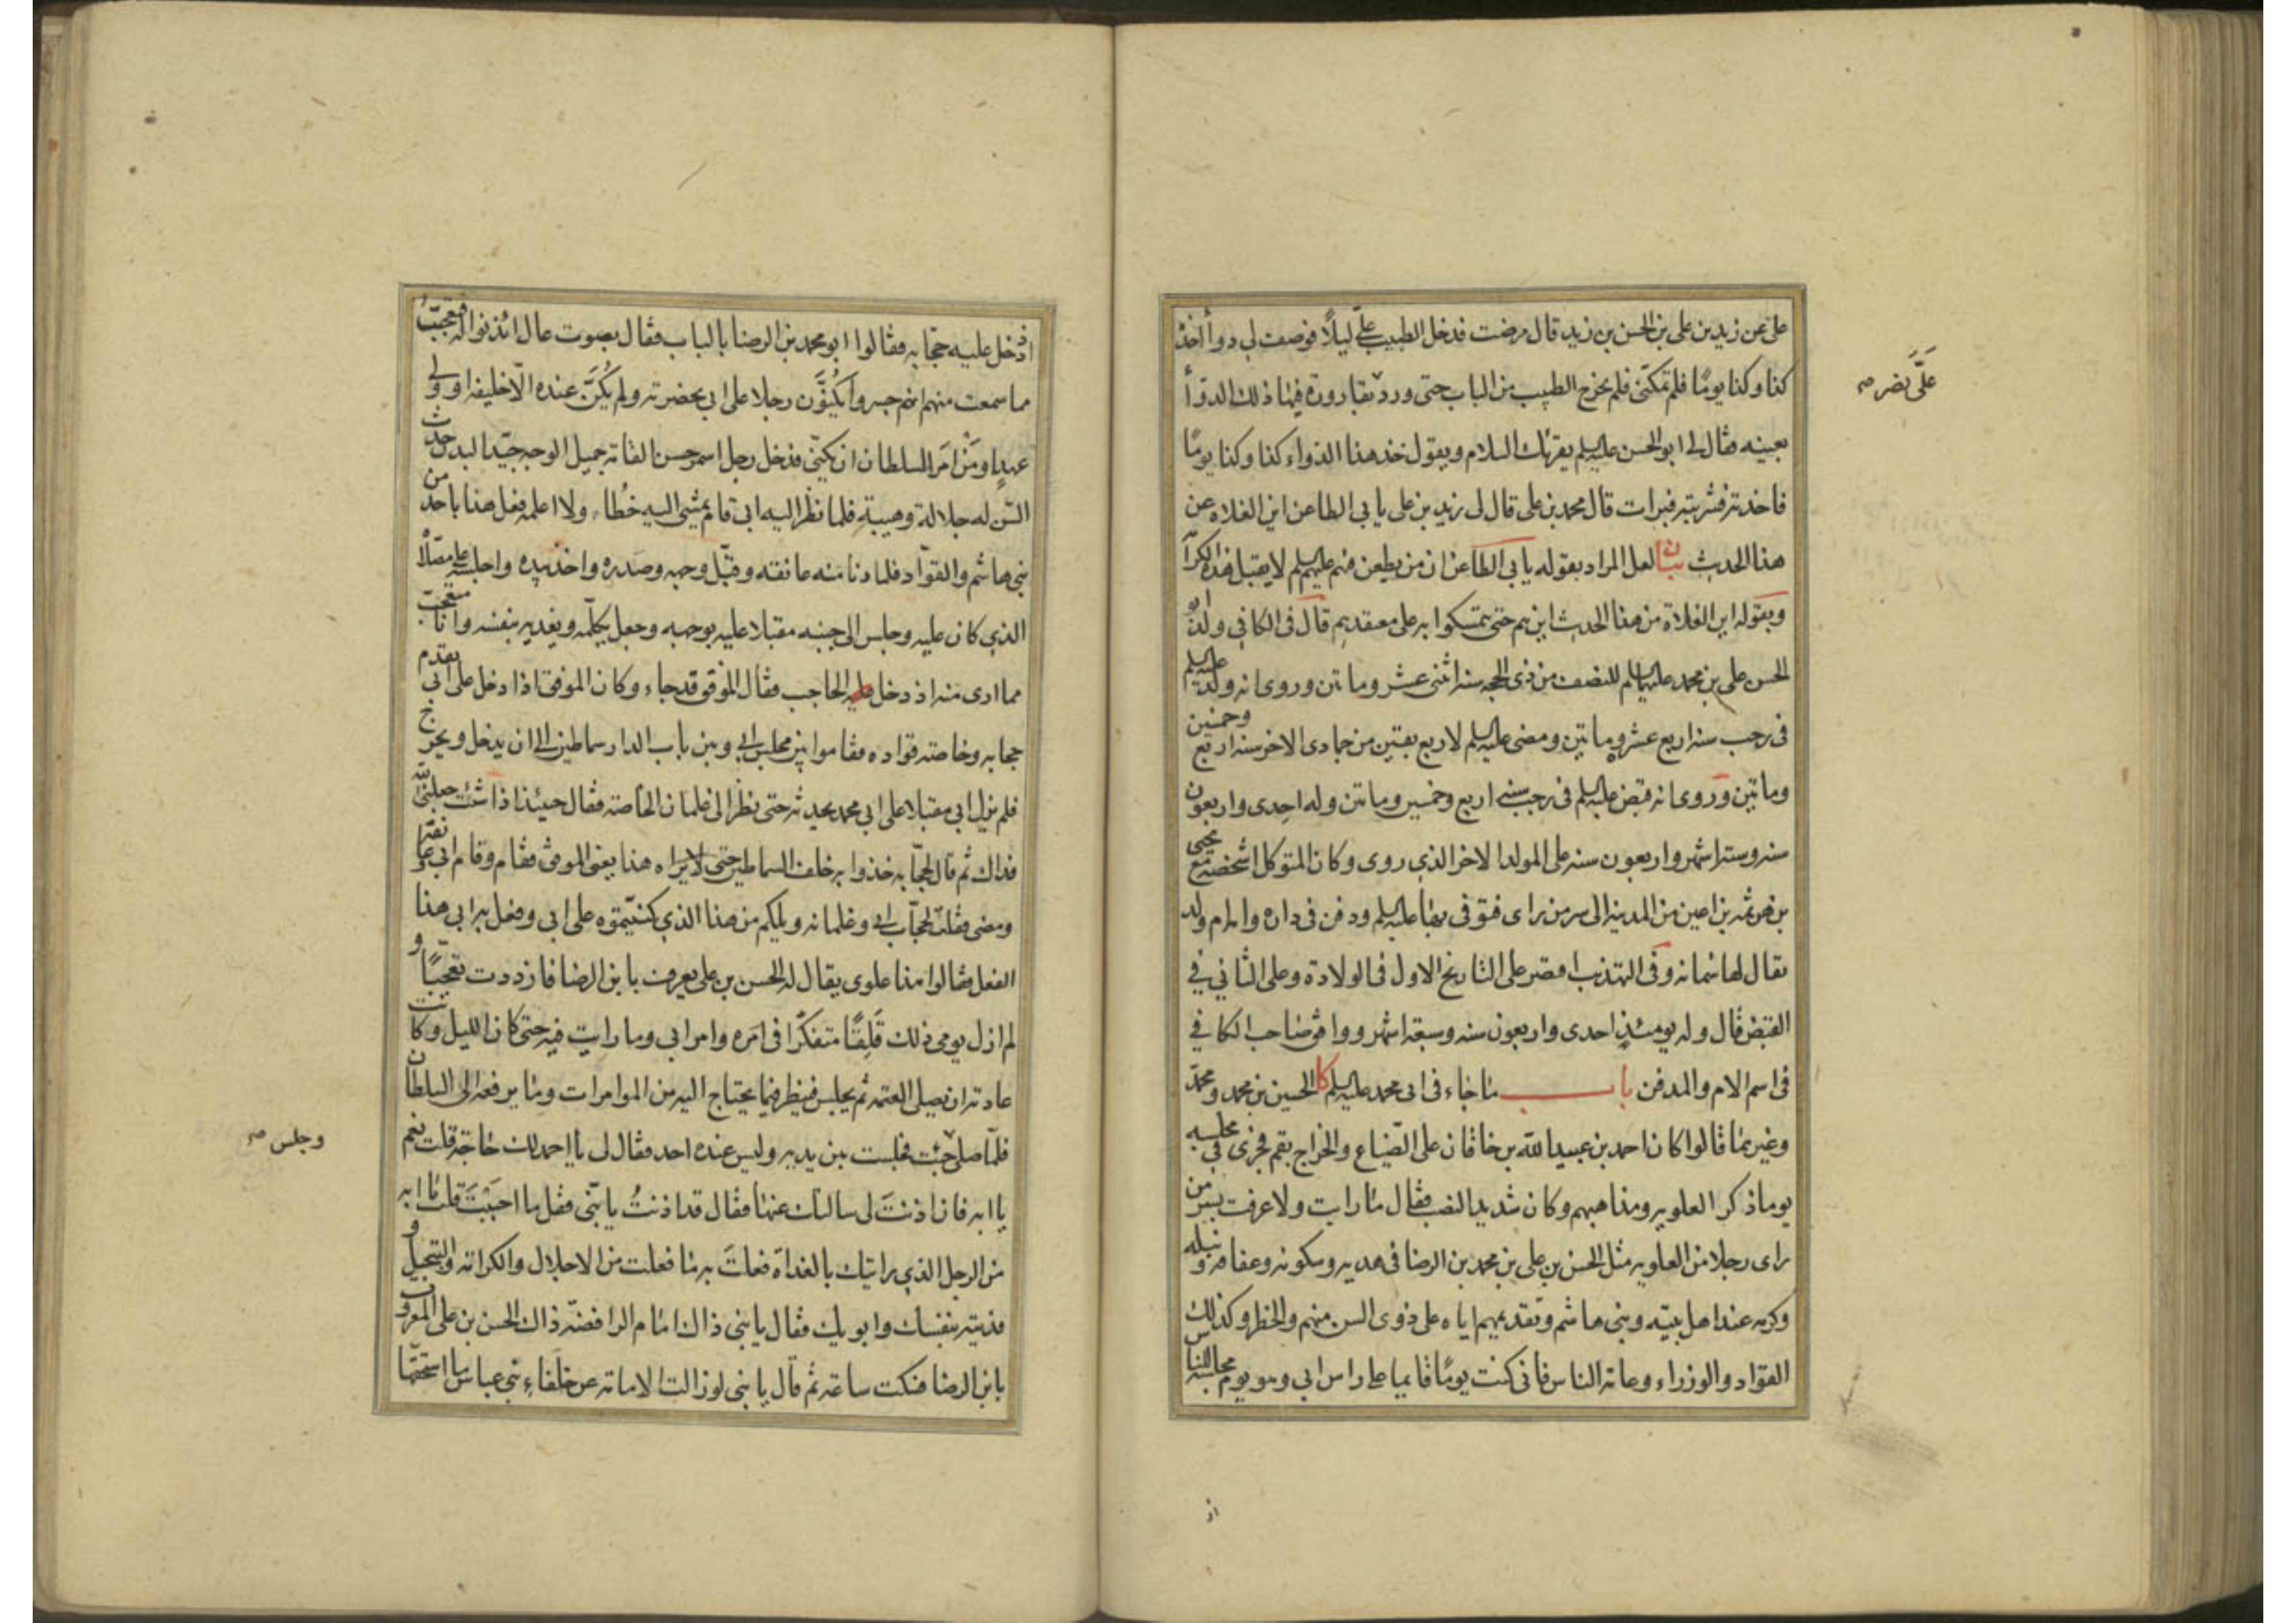 على عن زيد بن على بن الحسن بن زيد قال مرضت فدخل الطبيب علىّ ليلًا فوصف لى دواأ اخذه
كذا وكذا يومًا فلم تمكنّى فلم يخرج الطبيب من الباب حتى ورد بقارورة فيها ذلك الدواأ
علىَّ نَصَر صح
بعينه فقال لى ابو الحسن عليه السلم يقرئك السلام ويقول خذ هذا الدواء كذا وكذا يومًا
فاخذته فشربته فبرات قال محمد بن على قال لى زيد بن على يابى الطاعن اين الغلاة عن
هذا الحديث بيان لعل المراد بقوله يابى الطاعن ان من يطعن فيهم عليهم السلم لا يقبل هذه
وبقوله اين الغلاة من هذا الحديث اين هم حتى يتمسكوا به على معتقدهم قال فى الكافى ولد ابو
الحسن على بن محمد عليهما السلم للنصف من ذى الحجه سنه اثنى عشر وماتين وروى انه ولد عليه السلم
فى رجب سنه اربع عشر وماتين ومضى عليه السلم لاربع بقين من جمادى الاخر سنه اربع وخمسين
وماتين وروى انه قبض عليه السلم فى رجب سنه اربع وخمسين وماتين وله احدى واربعون
سنه وستة اشهر واربعون سنه على المولد الاخر الذى روى وكان المتوكل اشخصه مع يحيى
بن هرثمه بن اعين من المدينه الى سر من راى فتوفى بها عليه السلم ودفن فى داره وامه ام ولد
يقال لها سمانه وفى التهذيب اقتصر على التاريخ الاول فى الولادة وعلى الثانى فى
القبض قال وله يومئذٍ احدى واربعون سنه وسبعة اشهر ووافق صاحب الكافى
فى اسم الام والمدفن باب ما جاء فى ابى محمد عليه السلم كا الحسين بن محمد ومحمّد
وغيرهما قالوا كان احمد بن عبيد الله بن خاقان على الضّياع والخراج بقم فجرى فى مجلسه
يوما ذكر العلويه ومذاهبهم وكان شديد النصب فقال ما رايت ولا عرفت بسر من
راى رجلا من العلويه مثل الحسن بن على بن محمد بن الرضا فى هديه وسكونه وعفافه ونبله
وكرمه عند اهل بيته وبنى هاشم وتقديمهم اياه على ذوى السن منهم والخطر وكذلك
القواد والوزراء وعامة الناس فانى كنت يومًا قايما على راس ابى وهو يوم مجلسه للناس
اذ
اذ دخل عليه حجّابه فقالوا ابو محمد بن الرضا بالباب فقال بصوت عال ائذنوا له فتعجبّتُ
مما سمعت منهم انهم جسروا يُكَنُّون رجلا على ابى بحضرته ولم يُكَنَّ عنده الا خليفه او ولى
عهدٍ او مَنْ امَر السلطان ان يكنّى فدخل رجل اسمر حسن القامة جميل الوجه جيّد البدن حدث
السّن له جلالة وهيبة فلما نظر اليه ابى قام يمشى اليه خُطاء ولا اعلمه فعل هذا باحد من
بنى هاشم والقوّاد فلما دنا منه عانقه وقبّل وجهه وصدره واخذ بيده واجلسه على مصلّاه
الذى كان عليه وجلس الى جنبه مقبلا عليه بوجهه وجعل يكلّمه ويفديه بنفسه وانا متعجّب
مما ارى منه اذ دخل عليه الحاجب فقال الموفّق قد جاء وكان الموفق اذا دخل على ابى تقدم
حجابه وخاصة قواده فقاموا بين مجلس ابى وبين باب الدار سماطين الى ان يدخل ويخرج
فلم يزل ابى مقبلا على ابى محمد يحدثه حتى نظر الى غلمان الخاصة فقال حينئذ اذا شئت جعلنى الله
فداك ثم قال لحجّابه خذوا به خلف السماطين حتى لا يراه هذا يعنى الموفق فقام وقام ابى وعانقه
ومضى فقلت لحجّاب ابى وغلمانه ويلكم من هذا الذى كنّيتموه على ابى وفعل به ابى هذا
الفعل فقالوا هذا علوى يقال له الحسن بن على يعرف بابن الرضا فازددت تعجّبًا و
لم ازل يومى ذلك قَلِقًا متفكّرا فى امَره وامر ابى وما رايت فيه حتى كان الليل وكانت
عادته ان يصلى العتمه ثم يجلس فينظر فيما يحتاج اليه من الموامرات وما يرفعه الى السلطان
فلمّا صلى جئت فجلست بين يديه وليس عنده احد فقال لى يا احمد لك حاجة قلت نعم
وجلس صح
يا ابه فان اذنتَ لى سالتك عنها فقال قد اذنتُ يا بنّى فقل ما احببْتَ قلت يا ابه
من الرجل الذى رايتك بالغداة فعلتَ به ما فعلت من الاجلال والكرامة والتبجيل و
فديته بنفسك وابويك فقال يا بنى ذاك امام الرافضة ذاك الحسن بن على المعروف
بابن الرضا فسكت ساعة ثم قال يا بنى لو زالت الامامة عن خلفاء بنى عباس ما استحقّها